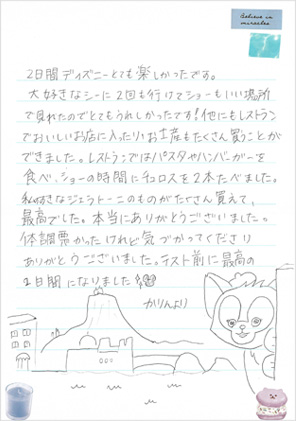 Believe in
miracles
2日間ディズニーとても楽しかったです。
大好きなシーに2回も行けてショーもいい場所
で見れたのでとてもうれしかったです!他にもレストラン
でおいしいお店に入ったり、お土産もたくさん買うことが
できました。レストランではパスタやハンバーガーを
食べ、ショーの時間にチュロスを2本たべました。
私の好きなジェラトーニのものがたくさん買えて、
最高でした。本当にありがとうございました。
体調悪かったけれど気づかってくださり
ありがとうございました。テスト前に最高の
2日間になりました
かりんより